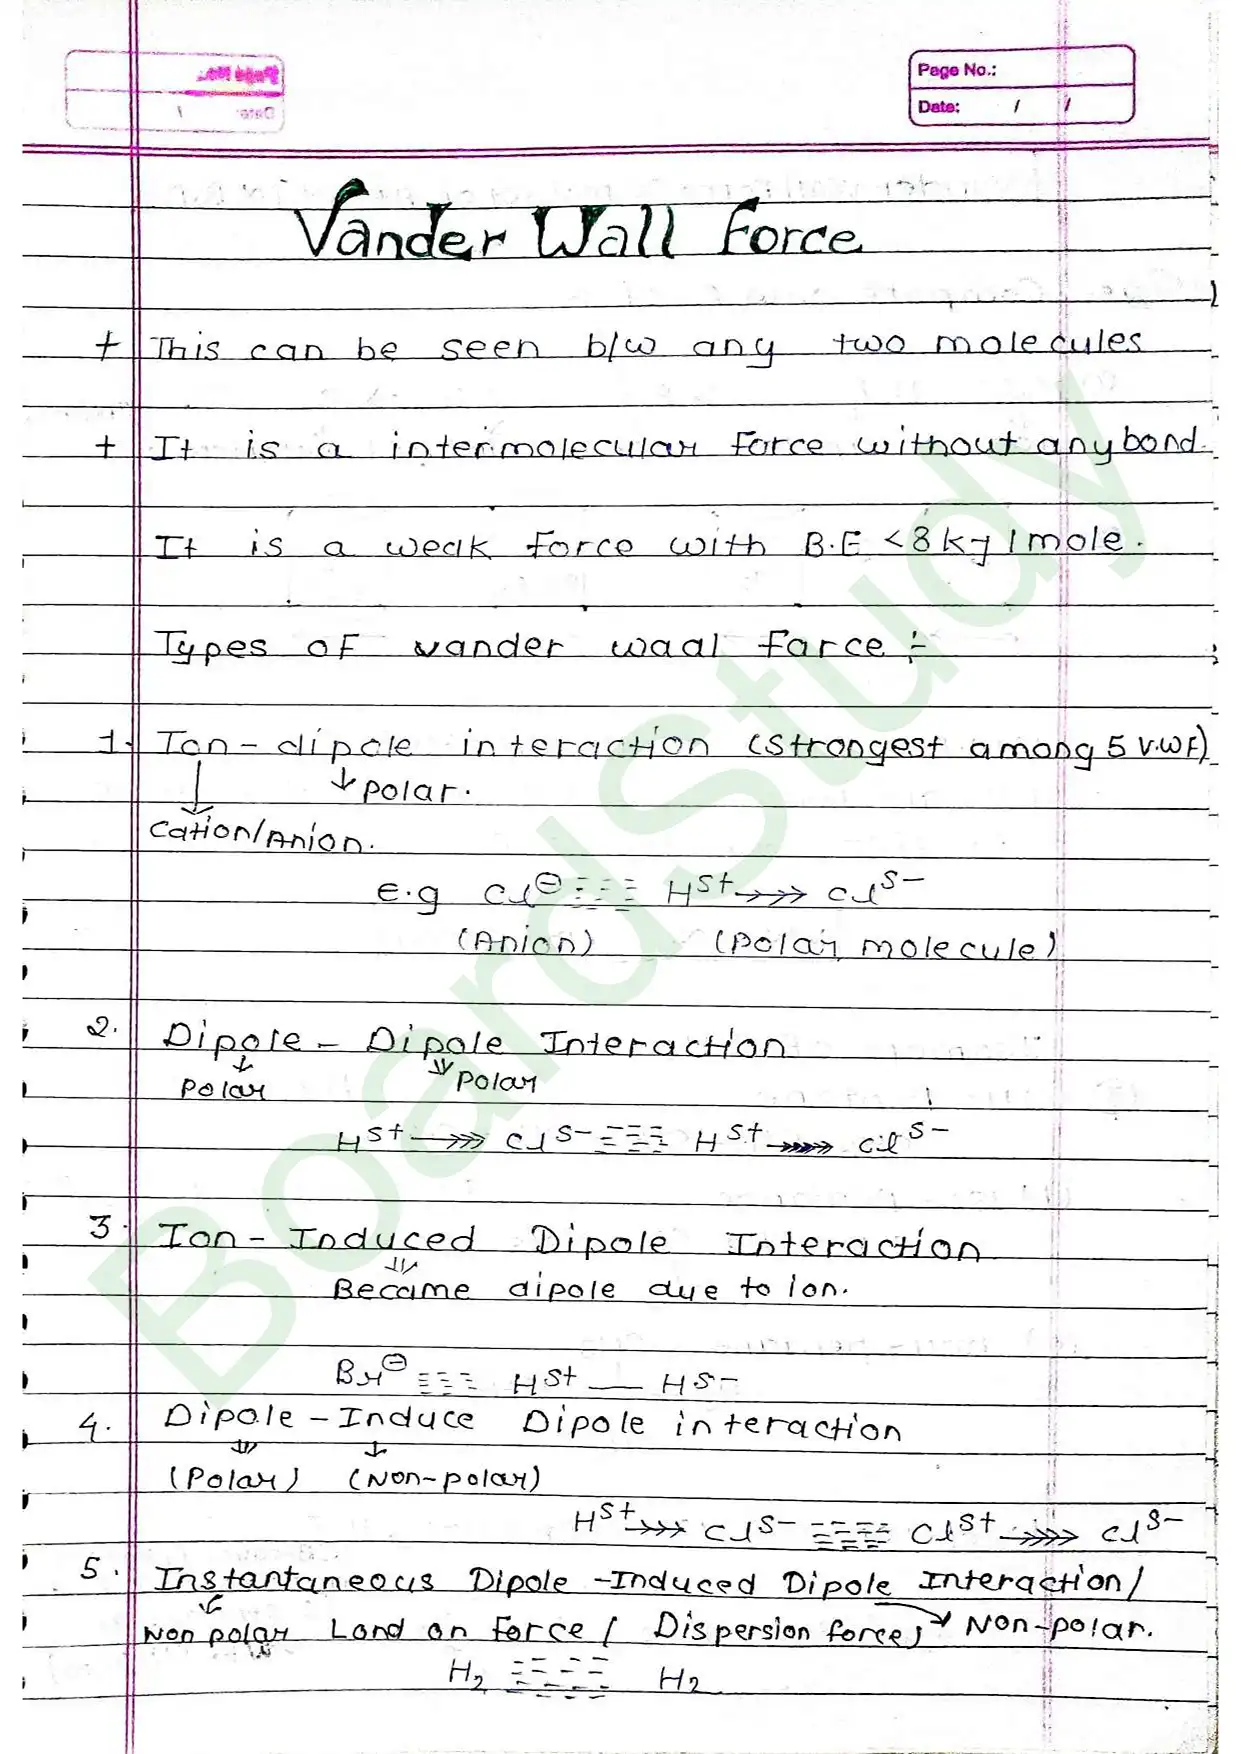 Page No.:
Date: / /
Vander Wall Force
+ This can be seen b/w any two molecules
+ It is a intermolecular force without any bond.
It is a weak force with B.E < 8 kJ/mole.
Types of vander waal farce :-
1. Ion-dipole interaction (Strongest among 5 V.W.F)
↓ polar.
Cation/Anion.
e.g Cl⊖ ≡≡≡ Hδ+ →>>> Clδ-
(Anion) (polar molecule)
2. Dipole - Dipole Interaction
Polar Polar
Hδ+ →>>> Clδ- ≡≡≡ Hδ+ →>>> Clδ-
3. Ion - Induced Dipole Interaction
Became dipole due to ion.
Br⊖ ≡≡≡ Hδ+ — Hδ-
4. Dipole - Induce Dipole interaction
(Polar) (Non-polar)
Hδ+ →>>> Clδ- ≡≡≡ Clδ+ →>>> Clδ-
5. Instantaneous Dipole -Induced Dipole Interaction/
Non polar Lond on force / Dispersion force, → Non-polar.
H2 ≡≡≡ H2
BoardStudy